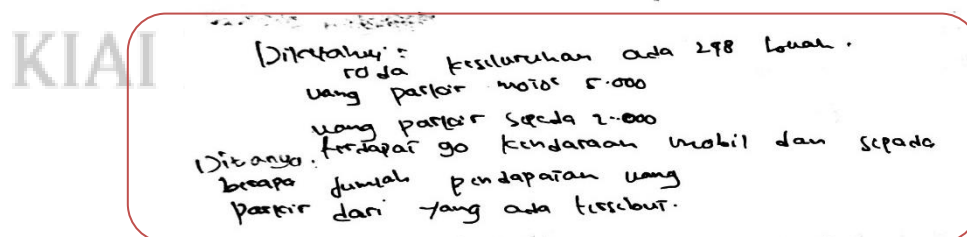 KIAI
Diketahui:
roda keseluruhan ada 298 buah.
uang parkir motor 5.000
uang parkir sepada 2.000
terdapat 90 kendaraan mobil dan sepada
Ditanya:
berapa jumlah pendapatan uang
parkir dari yang ada tersebut.